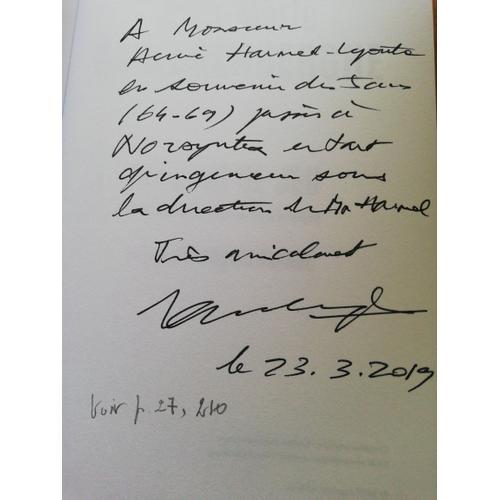 A Monsieur
Hervé Harmel-Lyonte
en souvenir des 5 ans
(64-69) passés à
Norsyntex en tant
qu'ingenieur sous
la direction de Mr Harmel
Très amicalement
le 23.3.2019
Voir p. 27, 210